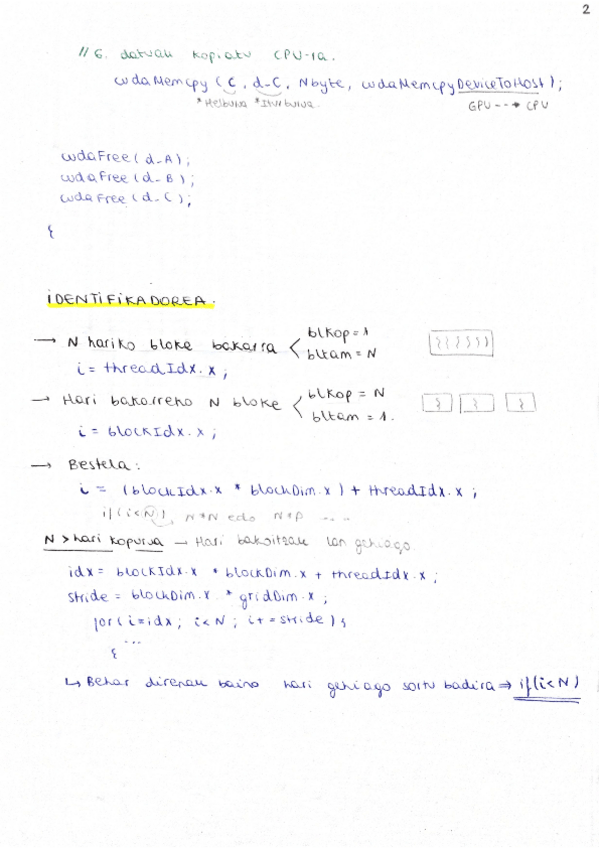 2
// 6. datuak kopiatu CPU-ra.
cudaMemcpy (C, d_C, Nbyte, cudaMemcpyDeviceToHost);
*Helburua *Iturburua
GPU --→ CPU
cudaFree(d_A);
cudaFree(d_B);
cudaFree(d_C);
}
IDENTIFIKADOREA.
→ N hariko bloke bakarra < blkop = 1
bltam = N
i = threadIdx.x;
→ Hari bakarreko N bloke < blkop = N
bltam = 1.
i = blockIdx.x;
→ Bestela:
i = (blockIdx.x * blockDim.x) + threadIdx.x;
if(i<N) N*N edo N*P ....
N > hari kopurua → Hari bakoitzak lan gehiago
idx = blockIdx.x * blockDim.x + threadIdx.x;
stride = blockDim.x * gridDim.x;
for(i=idx; i<N; i+=stride){
...
}
↳ Behar direnak baino hari gehiago sortu badira ⇒ if(i<N)